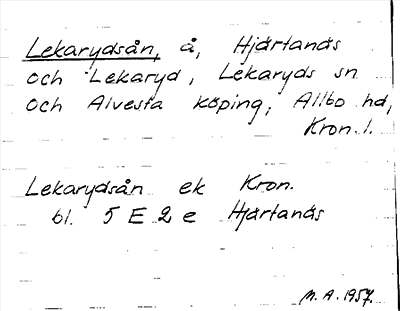 Lekarydsån, å, Hjärtanäs
och Lekaryd, Lekaryds sn
och Alvesta köping, Allbo hd,
Kron. l.
Lekarydsån ek Kron.
bl. 5 E 2 e Hjärtanäs
M. A. 1957.